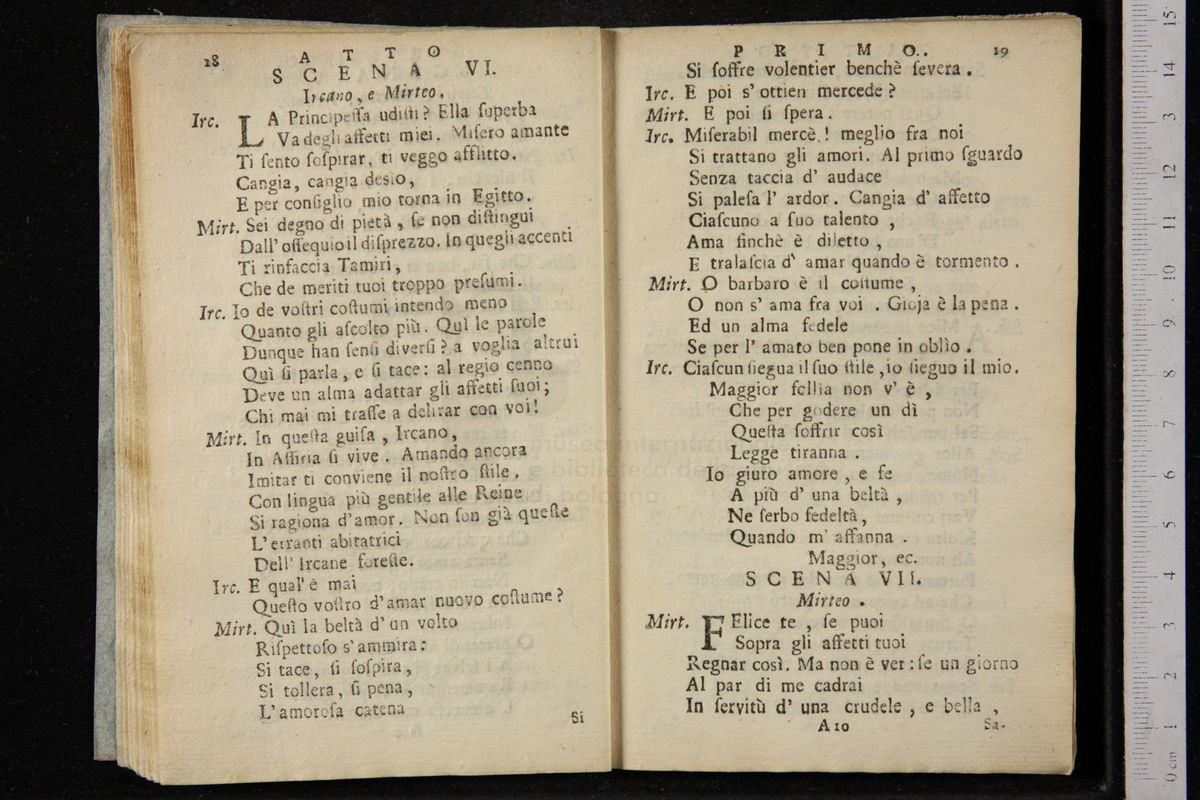 18
ATTO
SCENA VI.
Ircano, e Mirteo.
Irc. LA Principeſſa udiſti? Ella ſuperba
Va degli affetti miei. Miſero amante
Ti ſento ſoſpirar, ti veggo afflitto.
Cangia, cangia desìo,
E per conſiglio mio torna in Egitto.
Mirt. Sei degno di pietà, ſe non diſtingui
Dall' oſſequio il diſprezzo. In quegli accenti
Ti rinfaccia Tamiri,
Che de meriti tuoi troppo preſumi.
Irc. Io de voſtri coſtumi intendo meno
Quanto gli aſcolto più. Quì le parole
Dunque han ſenſi diverſi? a voglia altrui
Quì ſi parla, e ſi tace: al regio cenno
Deve un alma adattar gli affetti ſuoi;
Chi mai mi traſſe a delirar con voi!
Mirt. In queſta guiſa, Ircano,
In Aſſiria ſi vive. Amando ancora
Imitar ti conviene il noſtro ſtile.
Con lingua più gentile alle Reine
Si ragiona d'amor. Non ſon già queſte
L'erranti abitatrici
Dell' Ircane foreſte.
Irc. E qual' è mai
Queſto voſtro d'amar nuovo coſtume?
Mirt. Quì la beltà d'un volto
Riſpettoſo s'ammira:
Si tace, ſi ſoſpira,
Si tollera, ſi pena,
L'amoroſa catena
Si
PRIMO..
19
Si ſoffre volentier benchè ſevera.
Irc. E poi s' ottien mercede?
Mirt. E poi ſi ſpera.
Irc. Miſerabil mercè.! meglio fra noi
Si trattano gli amori. Al primo ſguardo
Senza taccia d' audace
Si paleſa l' ardor. Cangia d' affetto
Ciaſcuno a ſuo talento,
Ama finchè è diletto,
E tralaſcia d' amar quando è tormento.
Mirt. O barbaro è il coſtume,
O non s' ama fra voi. Gioja è la pena.
Ed un alma fedele
Se per l' amato ben pone in oblìo.
Irc. Ciaſcun ſiegua il ſuo ſtile, io ſieguo il mio.
Maggior follia non v' è,
Che per godere un dì
Queſta ſoffrir così
Legge tiranna.
Io giuro amore, e fe
A più d' una beltà,
Ne ſerbo fedeltà,
Quando m' affanna.
Maggior, ec.
SCENA VII.
Mirteo.
Mirt. FElice te, ſe puoi
Sopra gli affetti tuoi
Regnar così. Ma non è ver: ſe un giorno
Al par di me cadrai
In ſervitù d' una crudele, e bella,
A10
Sa-